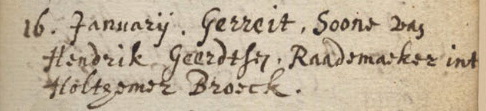 16. Januarij. Gerreit, Soone van
Hendrik Geerdtsen, Raademaeker int
Holtzemer Broeck.